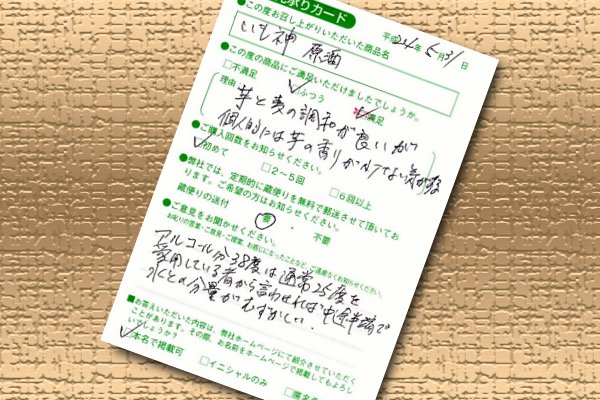 承りカード
平成24年5月31日
●この度お召し上がりいただいた商品名
いも神 原酒
●この度の商品にご満足いただけましたでしょうか。
□不満足 ふつう 満足
理由
芋と麦の調和が良いが
個人的には芋の香りが少ない気がする
●ご購入回数をお知らせください。
初めて □2〜5回 □6回以上
●弊社では、定期的に蔵便りを無料で郵送させて頂いてお
ります。ご希望の方はお知らせください。
蔵便りの送付 要 ・ 不要
●ご意見をお聞かせください。
お叱りの言葉・ご意見・ご提案、お感じになったことなど、ご遠慮なくお知らせください。
アルコール分38度は通常25度を
愛用している者から言わせれば中途半端で
水との分量がむずかしい.
■お答えいただいた内容は、弊社ホームページにて紹介させていただく
ことがあります。その際、お名前をホームページで掲載してもよろし
いでしょうか?
本名で掲載可 □イニシャルのみ □匿名